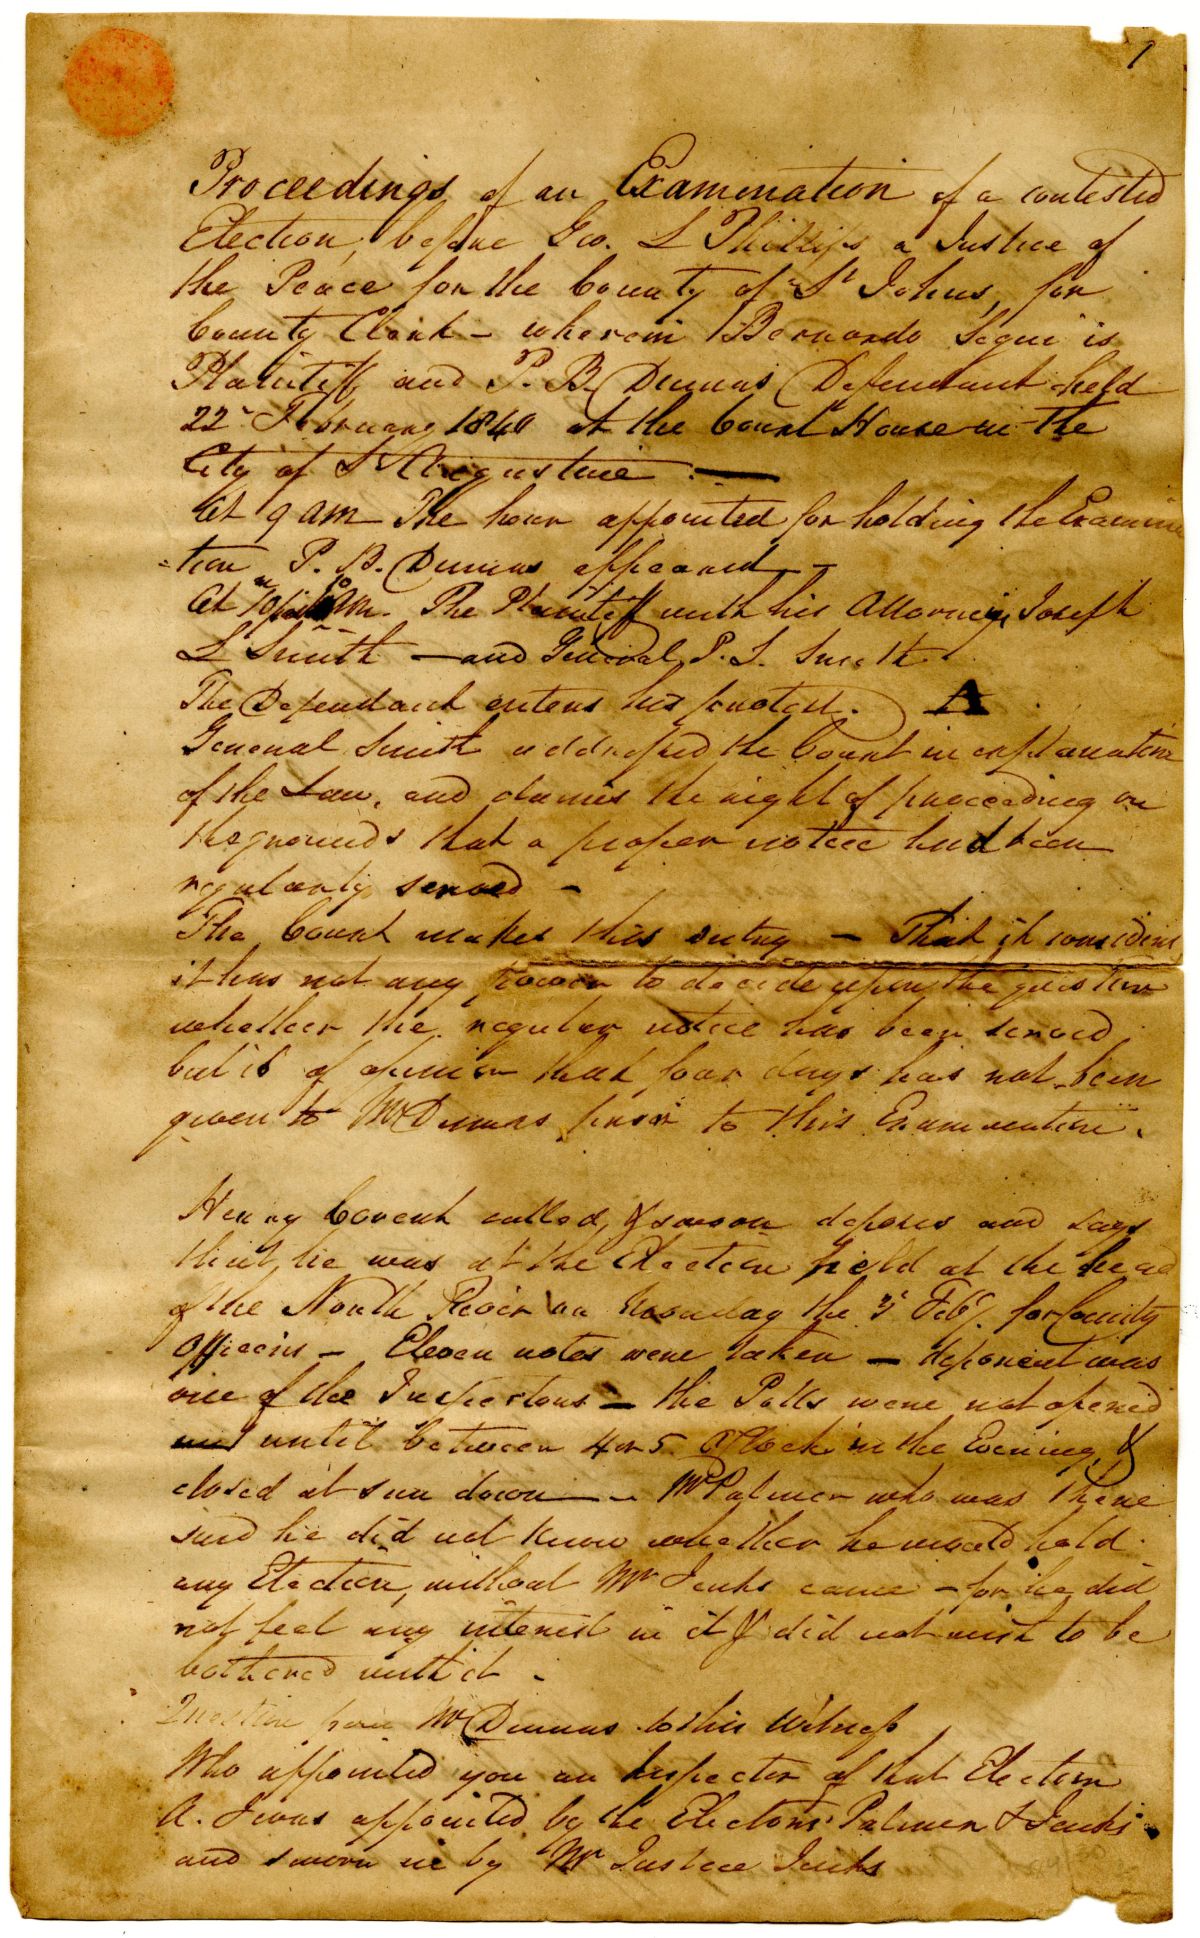 1
Proceedings of an Examination of a contested
Election, before Geo. L Phillips a Justice of
the Peace for the County of St Johns, for
County Clerk - wherein Bernardo Segui is
Plaintiff and P. B. Dumas Defendant held
22d February 1840 at the Court House in the
City of St Augustine. —
At 9 am The hour appointed for holding the Examina
-tion P. B. Dumas appeared -
At 10 AM. The Plaintiff with his Attorney, Joseph
L Smith — and General P. S. Smith.
The Defendant enters his protest. A
General Smith addressed the Court in explanation
of the Law, and claims the right of proceeding on
the grounds that a proper notice had been
regularly served -
The Court makes this entry - That it considers
it has not any power to decide upon the question
whether the regular notice has been served
but is of opinion that four days has not been
given to Mr Dumas prior to this Examination.
Henry called, & sworn deposes and says
that he was at the Election held at the head
of the North River on Monday the 3d Feby. for County
Officers - Eleven votes were taken — deponent was
one of the Inspectors — the Polls were not opened
until between 4 or 5 O'Clock in the Evening, &
closed at sun down — Mr Palmer who was there
said he did not know whether he would hold
any Election, without Mr Jenks came - for he did
not feel any interest in it & did not wish to be
bothered with it -
Question from Mr Dumas to this Witness
Who appointed you an Inspector of that Election
A. I was appointed by the Electors Palmer & Jenks
and sworn in by Mr Justice Jenks